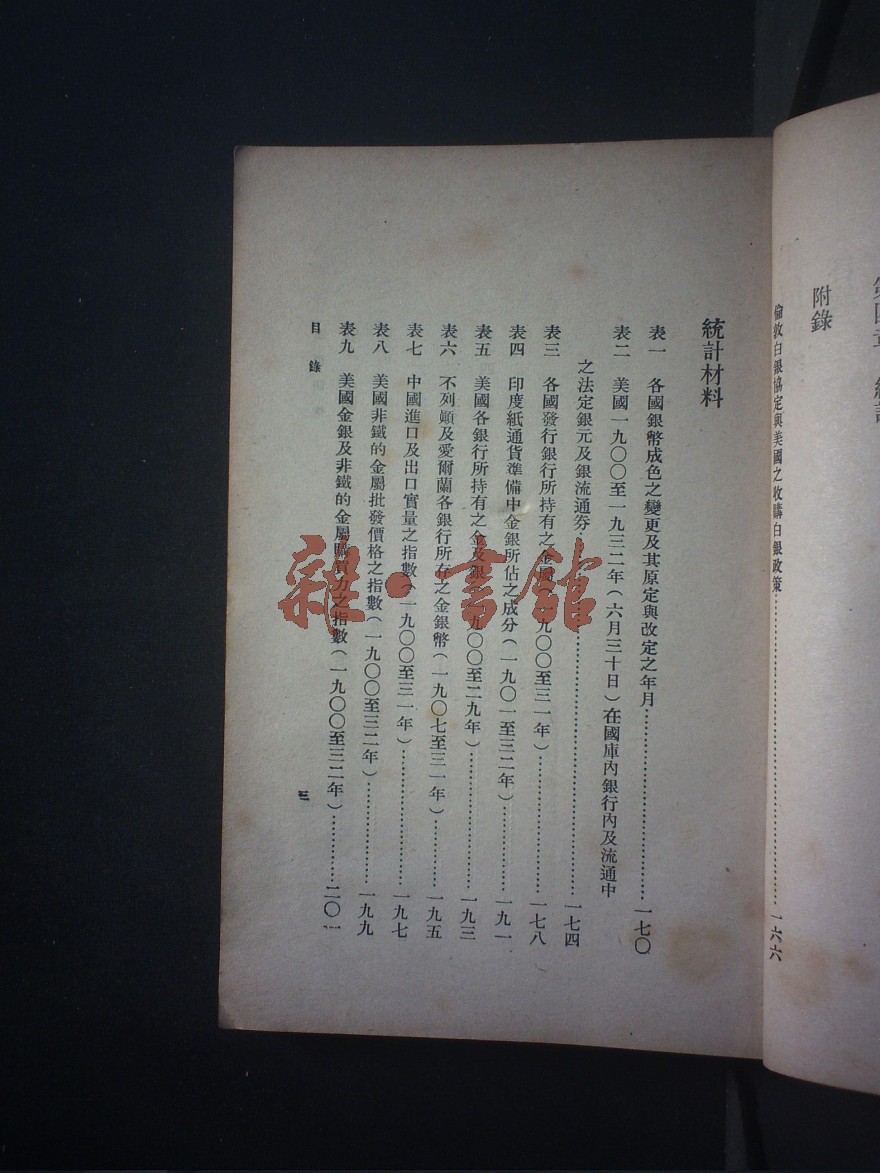 附錄
倫敦白銀協定與美國之收購白銀政策…………一六六
統計材料
表一 各國銀幣成色之變更及其原定與改定之年月…………一七〇
表二 美國一九〇〇至一九三二年(六月三十日)在國庫內銀行內及流通中
之法定銀元及銀流通券…………一七四
表三 各國發行銀行所持有之金屬(一九〇〇至三一年)…………一七八
表四 印度紙通貨準備中金銀所佔之成分(一九〇一至三二年)…………一九一
表五 美國各銀行所持有之金及銀(一九〇〇至二九年)…………一九三
表六 不列顚及愛爾蘭各銀行所存之金銀幣(一九〇七至三一年)…………一九五
表七 中國進口及出口實量之指數(一九〇〇至三一年)…………一九七
表八 美國非鐵的金屬批發價格之指數(一九〇〇至三二年)…………一九九
表九 美國金銀及非鐵的金屬購買力之指數(一九〇〇至三二年)…………二〇一
目錄
三
雜·書館